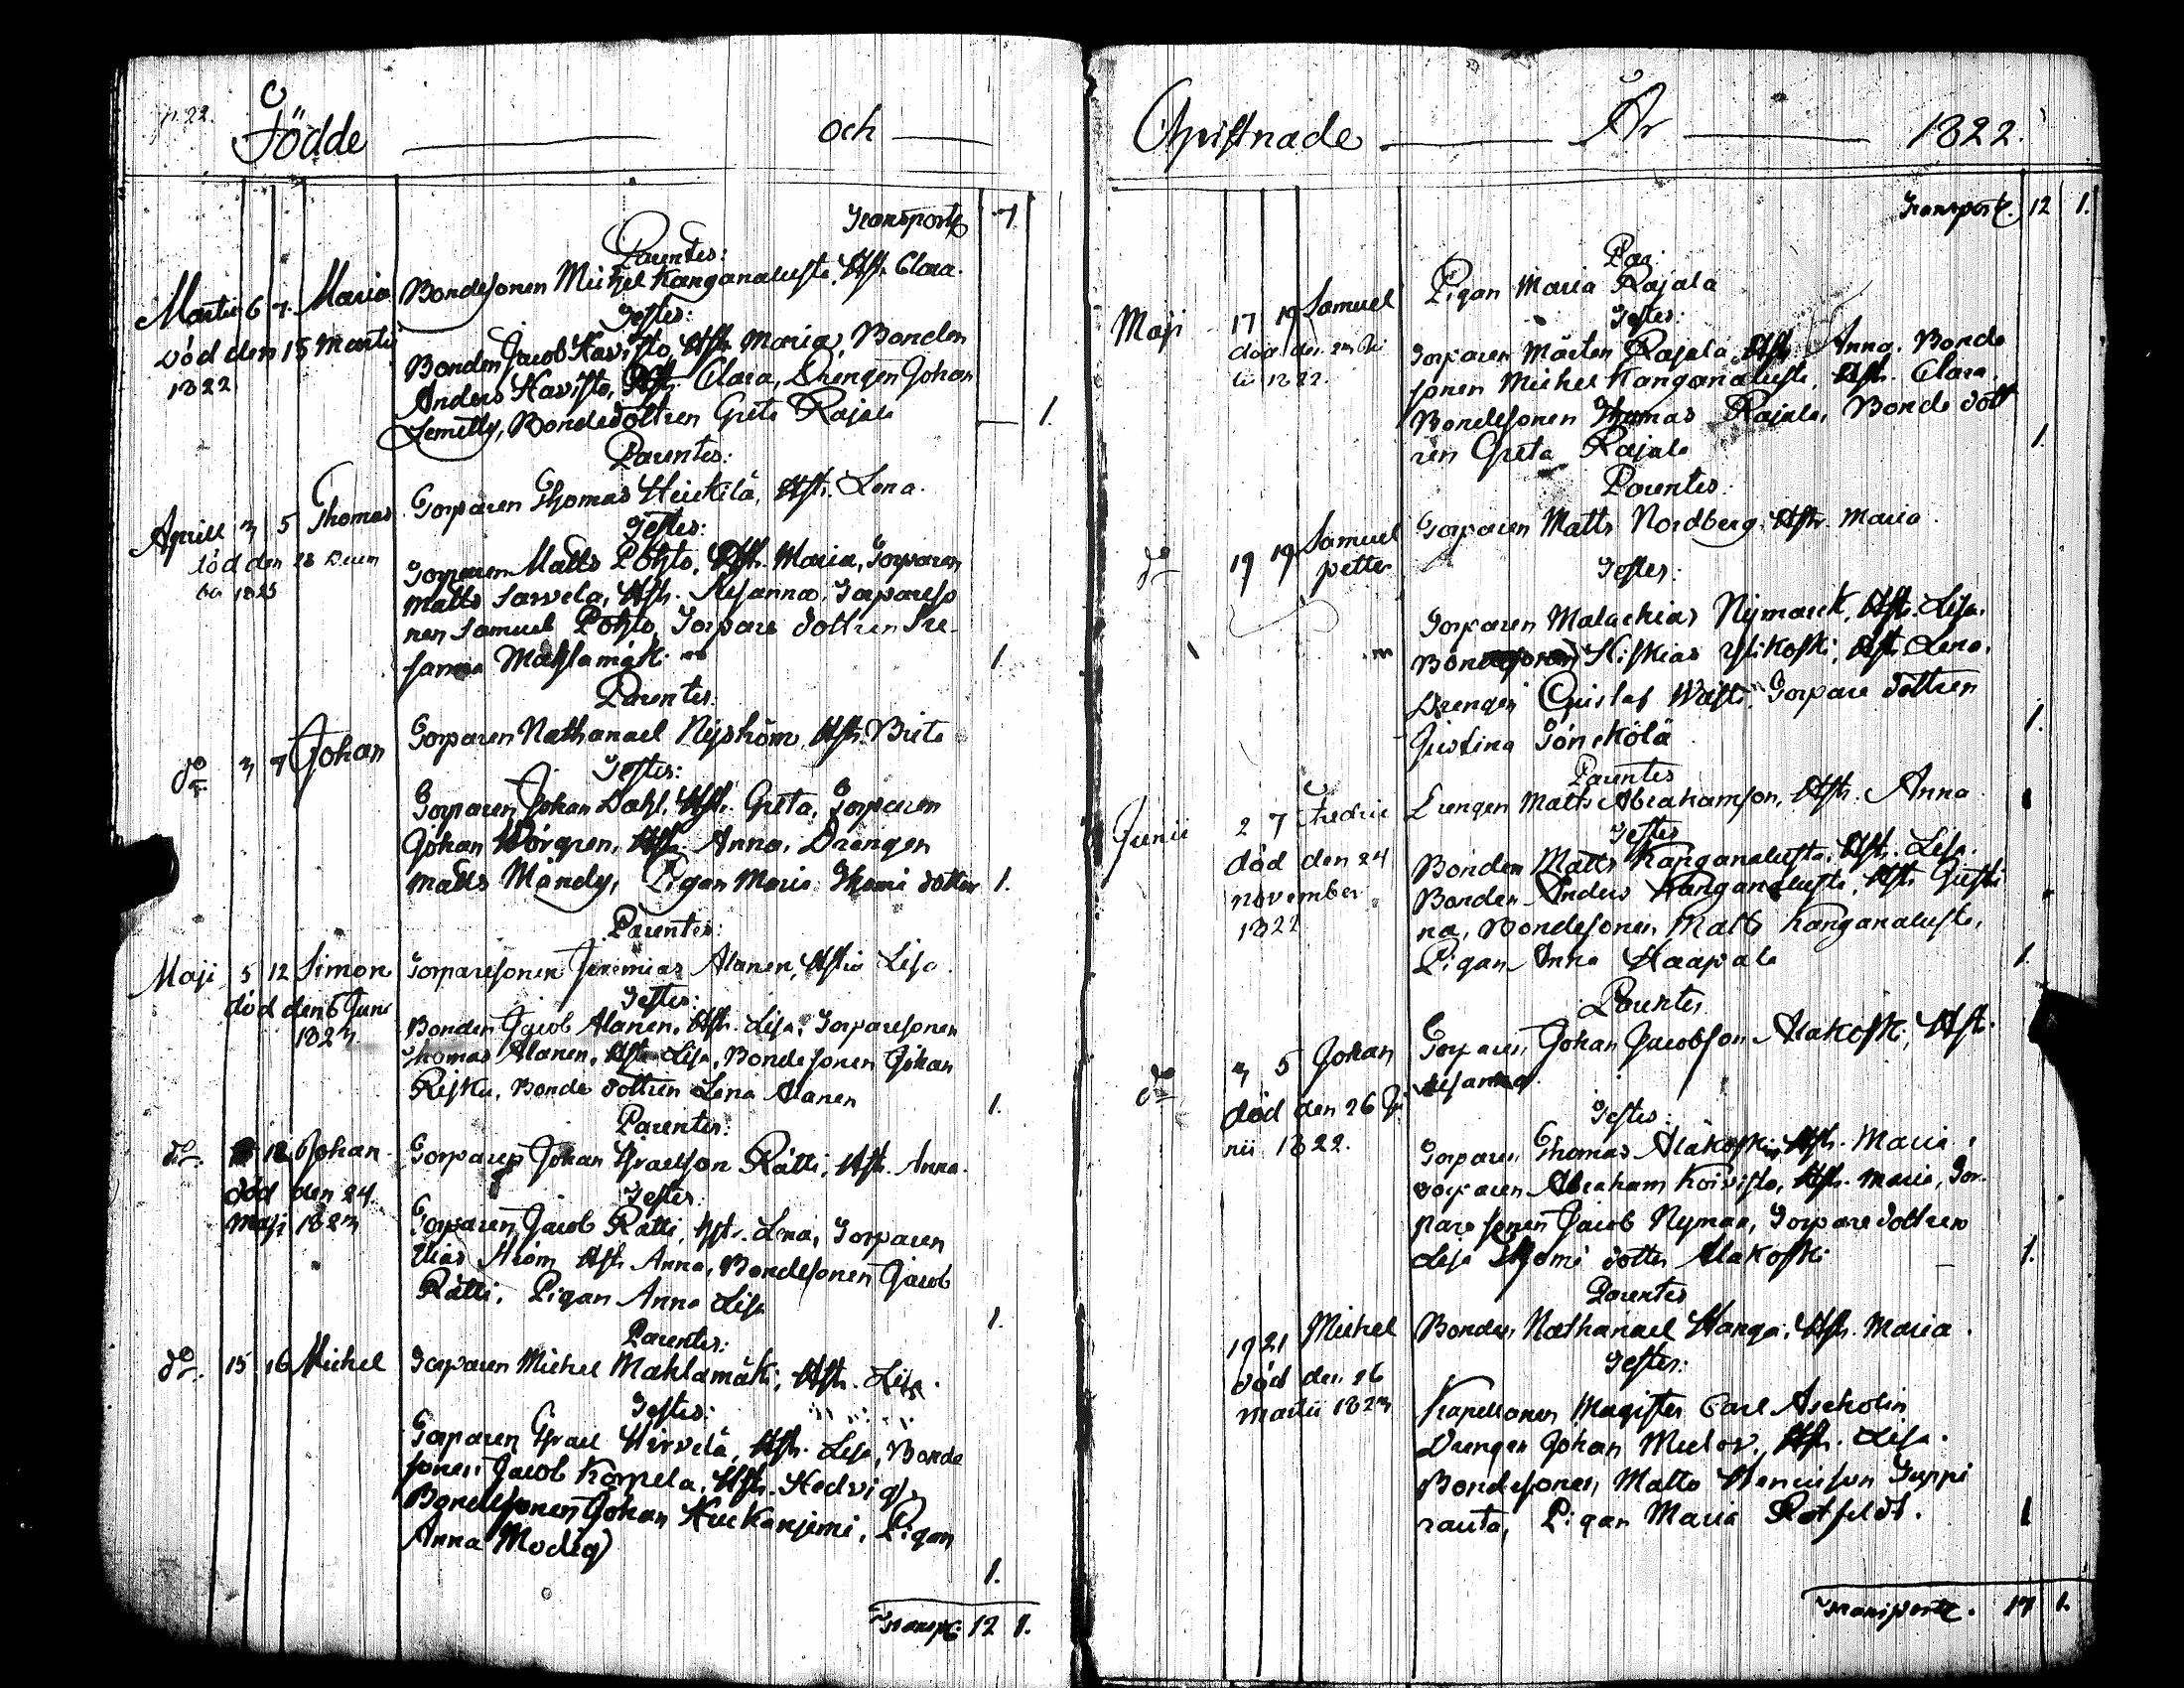 p. 22.
Födde och
Transport 7
Parentes:
Martii 6 7. Maria Bondesonen Michel Kanganaluste, Hstr. Clara.
Testes:
död den 15 Martii
1822
Bonden Jacob Havisto, Hstr. Maria, Bonden
Anders Havisto, Hstr. Clara, Drengen Johan
Bondedottren Greta Rajala 1.
Parentes:
Aprill 3 5 Thomas Torparen Thomas Heickilä, Hstr. Lena.
Testes:
död den 28 Decem
ber 1825
Torparen Matts Pohto, Hstr. Maria, Torparen
Matts Sarvela, Hstr. Susanna, Torpareso
nen Samuel Pohto, Torpare dottren Su-
sanna Mahlamäk 1.
Parentes:
do 3 7 Johan Torparen Nathanael Nyström, Hstr. Brita
Testes:
Torparen Johan Dahl, Hstr. Greta, Torparen
Johan Hstr. Anna, Drengen
Matts Mandy, Pigan Maria Thomä dotter 1.
Parentes:
Maji 5 12 Simon Torparesonen Jeremias Alanen, Hstru Lisa.
Testes:
död den 6 Juni
1823
Bonden Jacob Alanen, Hstr. Lisa, Torparesonen
Thomas Alanen, Hstr. Lisa, Bondesonen Johan
Risku, Bonde dottren Lena Alanen 1.
Parentes:
do. 12 Johan Torparen Johan Israelson Rätti, Hstr. Anna.
Testes:
död den 24
Maji 1823
Torparen Jacob Rätti, Hstr. Lena, Torparen
Elias Ström Hstr. Anna, Bondesonen Jacob
Rätti, Pigan Anna Lisa 1.
Parentes:
do. 15 16 Michel Torparen Michel Mahlamäki, Hstr. Lisa.
Testes:
Torparen Israel Hirvelä, Hstr. Lisa, Bonde
sonen Jacob Korpela, Hstr. Hedvig,
Bondesonen Johan Kuckanjemi, Pigan
Anna Modig
1.
Transpt: 12 1.
Christnade År 1822.
Transport. 12 1.
Par:
Maji 17 19 Samuel Pigan Maria Rajala
Testes:
1822.
Torparen Mårten Rajala, Hstr. Anna. Bonde
sonen Michel Kanganaluste, Hstr. Clara.
Bondesonen Thomas Rajala, Bonde dott
ren Greta Rajala 1.
Parentes:
do 19 19 Samuel
petter
Torparen Matts Nordberg, Hstr. Maria.
Testes:
Torparen Malachias Nymarck, Hstr. Lisa.
Hiskias Hstr. Lena.
Drengen Torpare dottren
Justina 1.
Parentes
Junii 2 7 Fredric Drengen Matts Abrahamson, Hstr. Anna
Testes
död den 24
November
1822
Bonden Matts Kanganaluste, Hstr. Lisa.
Bonden Anders Kanganaluste, Hstr. Justi
na, Bondesonen Matts Kanganaluste,
Pigan Anna Haapala 1.
Parentes
do 3 5 Johan Torparen Johan Jacobson Alakoski, Hstr.
Susanna
Testes:
död den 26 Ju
nii 1822.
Torparen Thomas Alakoski, Hstr. Maria,
Torparen Abraham Koivisto, Hstr. Maria, Tor-
pare sonen Jacob Nyman, Torpare dottren
Lisa Thomä dotter Alakoski 1.
Parentes
19 21 Michel Bonden Nathanael Hanga, Hstr. Maria.
Testes:
död den 16
Martii 1823
Kapellanen Magister Carl Ascholin
Drengen Johan Hstr. Lisa.
Bondesonen Matts Henricson Juppi
rauta, Pigan Maria Rotfeldt. 1
Transport. 17 1.